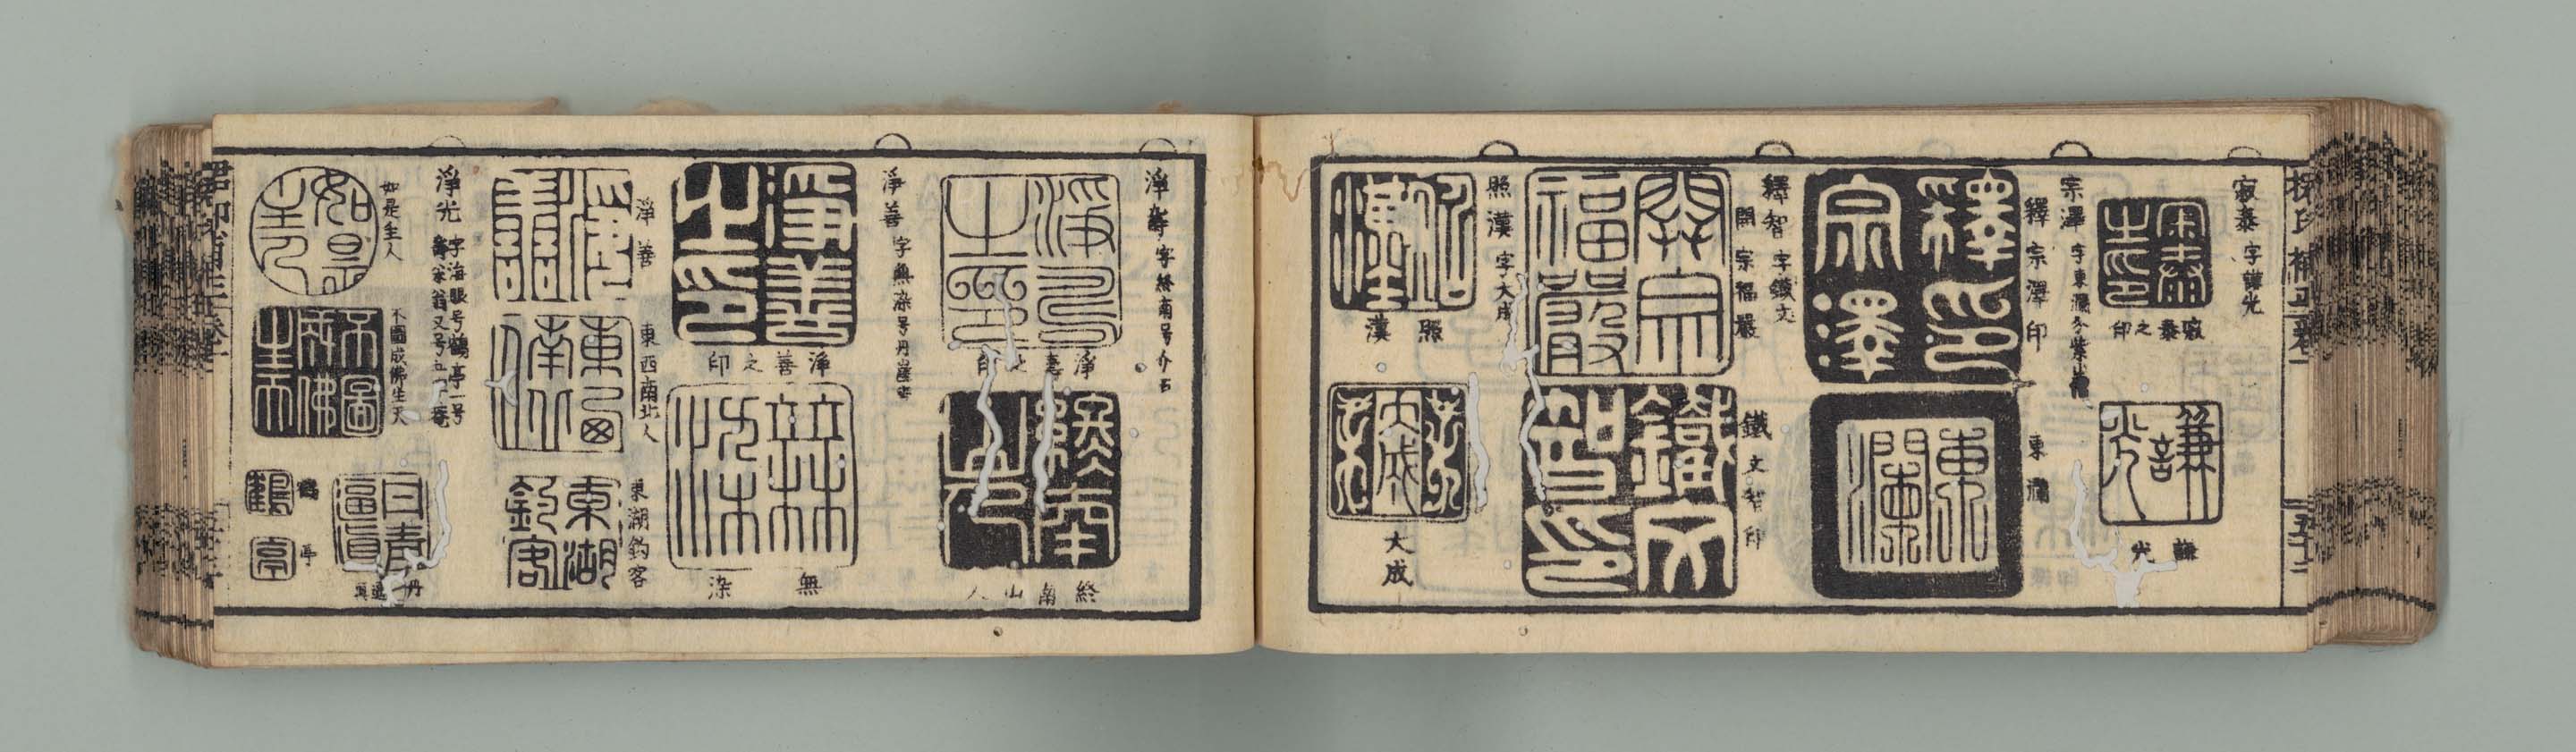 寂泰 字謙光
寂泰之印
謙光
宗澤 字東瀾
釋宗澤印
東瀾
釋智 字鐵文
開宗福嚴
鐵文智印
照漢 字大成
照漢
大成
淨壽 字終南号
淨壽之印
終南山人
淨善 字無染号丹崖
淨善之印
無染
淨善
東西南北人
東湖釣客
淨光 字海眼号鶴亭一号
壽米翁又号五
如是主人
不圖成佛生天
鶴亭